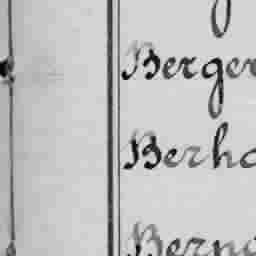 Berger
Berho
Berno